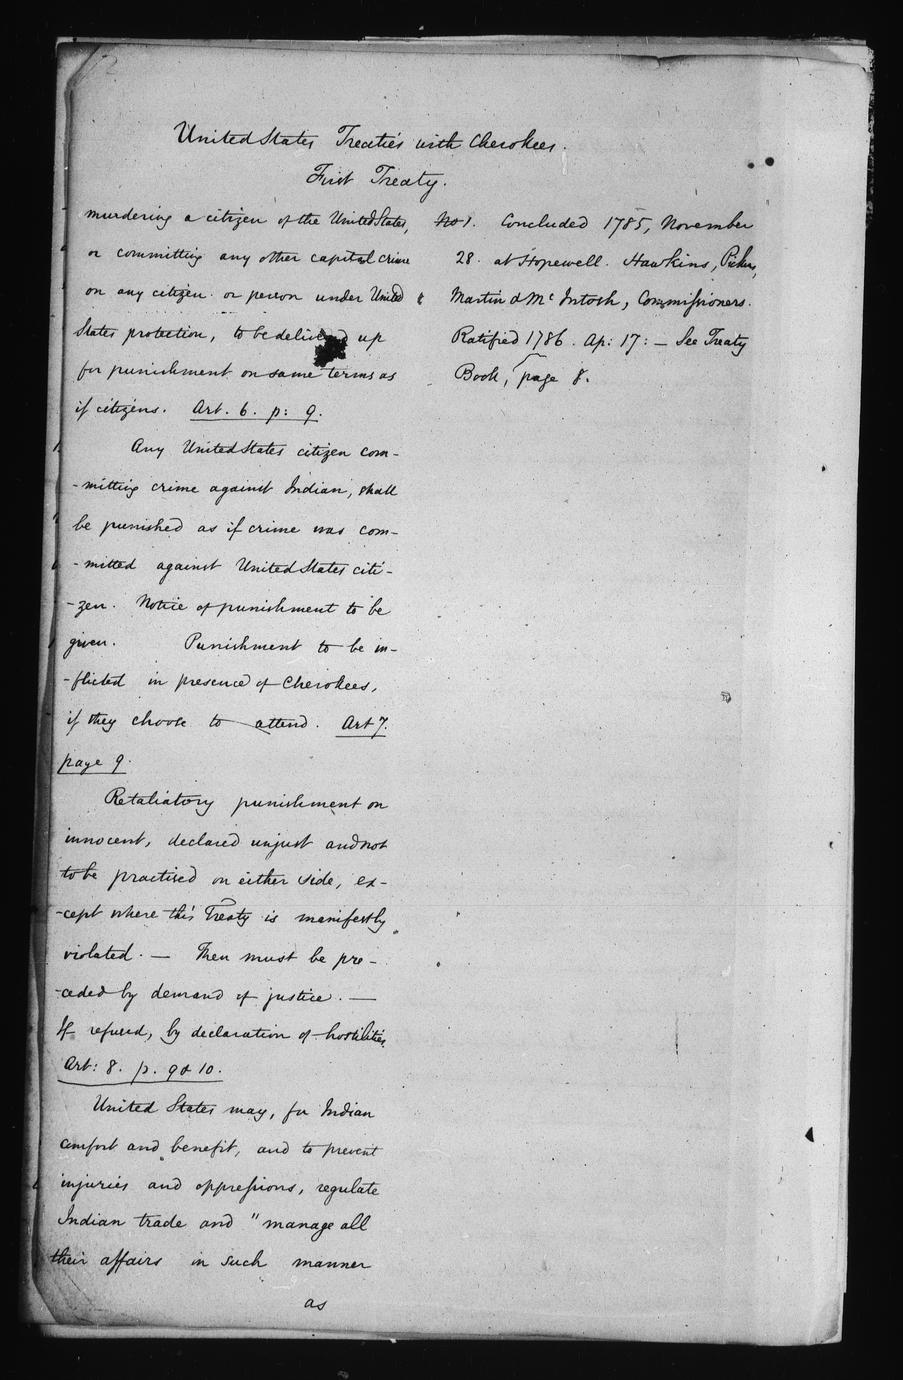 2
United States Treaties with Cherokees.
First Treaty.
murdering a citizen of the United States,
or committing any other capital crime
on any citizen or person under United
States protection, to be delivered up
for punishment on same terms as
if citizens. Art. 6. p: 9.
Any United States citizen com-
-mitting crime against Indian, shall
be punished as if crime was com-
-mitted against United States citi-
-zen. Notice of punishment to be
given. Punishment to be in-
-flicted in presence of Cherokees,
if they choose to attend. Art 7.
page 9.
Retaliatory punishment on
innocent, declared unjust and not
to be practised on either side, ex-
-cept where this Treaty is manifestly
violated. — Then must be pre-
-ceded by demand of justice. —
If refused, by declaration of hostilities.
Art: 8. p. 9 & 10.
United States may, for Indian
comfort and benefit, and to prevent
injuries and oppressions, regulate
Indian trade and "manage all
their affairs in such manner
as
No 1. Concluded 1785, November
28. at Hopewell. Hawkins, Pickns,
Martin & Mc Intosh, Commissioners.
Ratified 1786. Ap: 17: — See Treaty
Book, page 8.